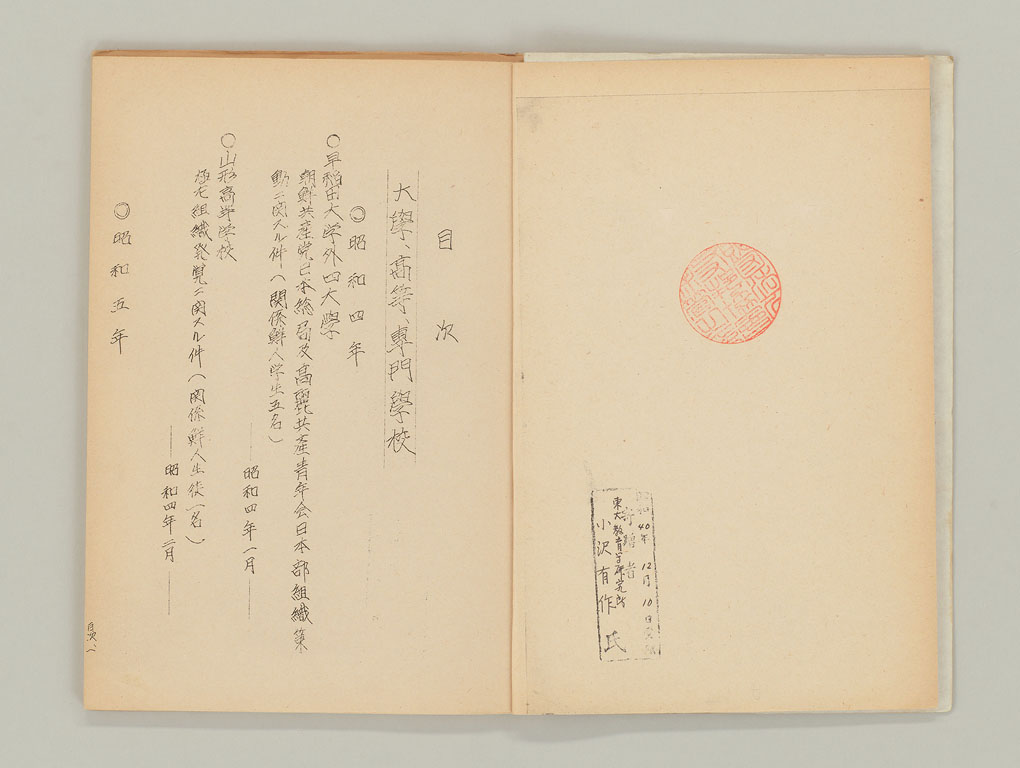 昭和40年12月10日
寄贈者
東大教育学研究所
小沢有作氏
目次
大學、高等、専門學校
◎昭和四年
○早稲田大学外四大學
朝鮮共産党日本総局及高麗共産青年会日本部組織策
動ニ関スル件(関係鮮人学生五名)
――昭和四年一月――
○山形高等学校
極左組織発覚ニ関スル件(関係鮮人生徒一名)
――昭和四年二月――
◎昭和五年
目次一